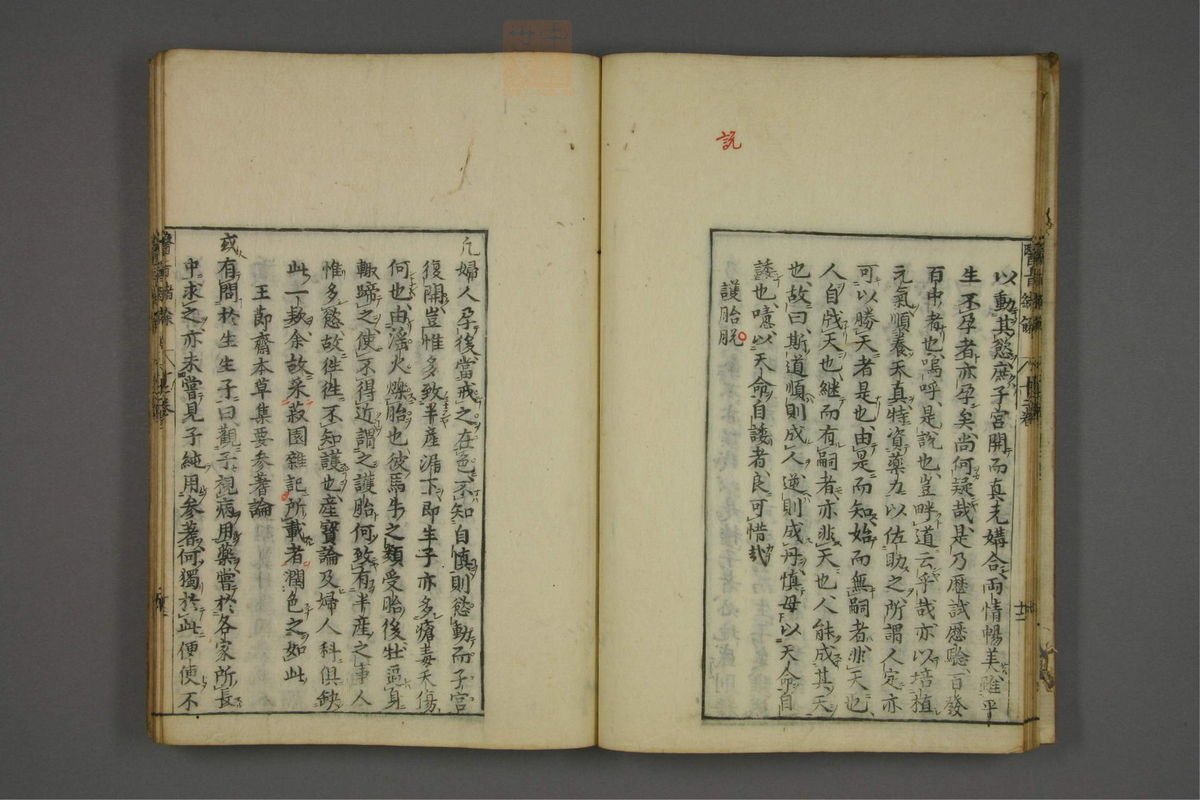 説
以動其慾庶子宮開而真元媾合両情暢美雖平
生不孕者亦孕矣尚何疑哉是乃歴試歴驗百發
百中者也嗚呼是說也豈畔道云乎哉亦以培植
元氣順養天真特資藥力以佐助之所謂人定亦
可以勝天者是也由是而知始而無嗣者非天也
人自戕天也継而有嗣者亦非天也人能成其天
也故曰斯道順則成人逆則成丹慎毋以天命自
諉也噫以天命自諉者良可惜哉
護胎脱
凡婦人孕後當戒之在色不知自慎則慾動而子宮
復開豈惟多致半産漏下即生子亦多瘡毒夭傷
何也由淫火爍胎也彼馬牛之類受胎後牡逼身
輙蹄之使不得近謂之護胎何致有半産之事人
惟多慾故徃徃不知護也産寶論及婦人科俱缺
此一欵余故采菽園雜記所載者潤色之如此
王節齋本草集要參蓍論
或有問於生生子曰觀子視病用藥嘗於各家所長
中求之亦未嘗見子純用參蓍何獨於此便使不